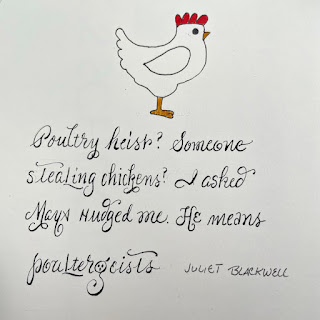 Poultry heist? Someone
stealing chickens? I asked
Mays nudged me. He means
poultergeists JULIET BLACKWELL